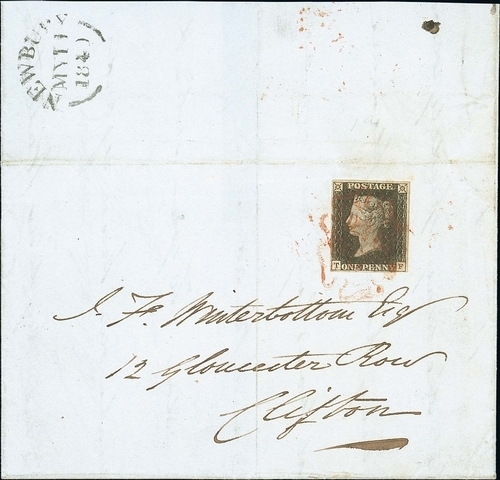 NEWBURY
MY 11
1840
POSTAGE
T ONE PENNY F
J. Fs. Winterbottom Esq
12 Gloucester Row
Clifton